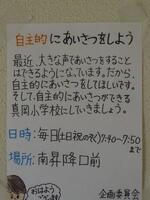 自主的にあいさつをしよう
最近、大きな声であいさつをすること
はできるようになっています。だから、
自主的にあいさつをしてほしいです。
そして、自主的にあいさつができる
真岡小学校にしていきましょう。
日時:毎日(土日祝のぞく)7:40~7:50
まで
場所:南昇降口前
おはよう
ござい
企画委員会